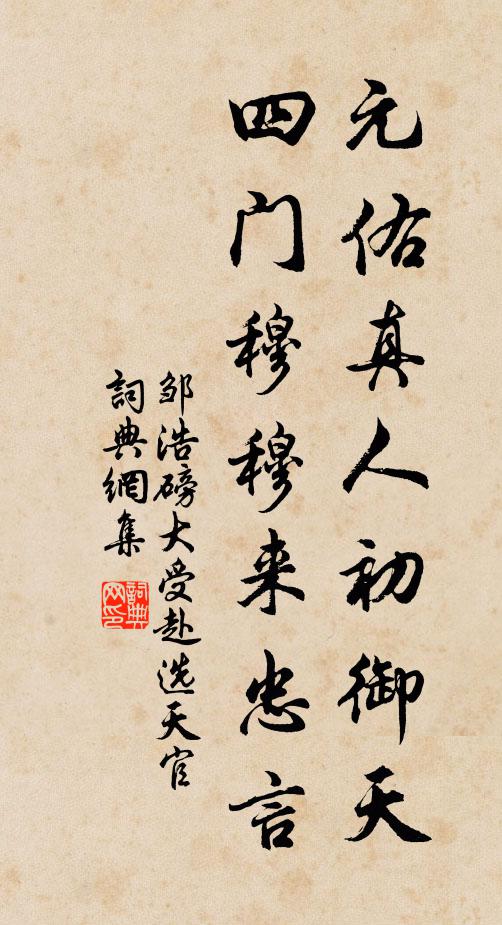 元佑真人初御天
四门穆穆来忠言
邹浩磅大受赴选天官
詞典網集
詞典网印